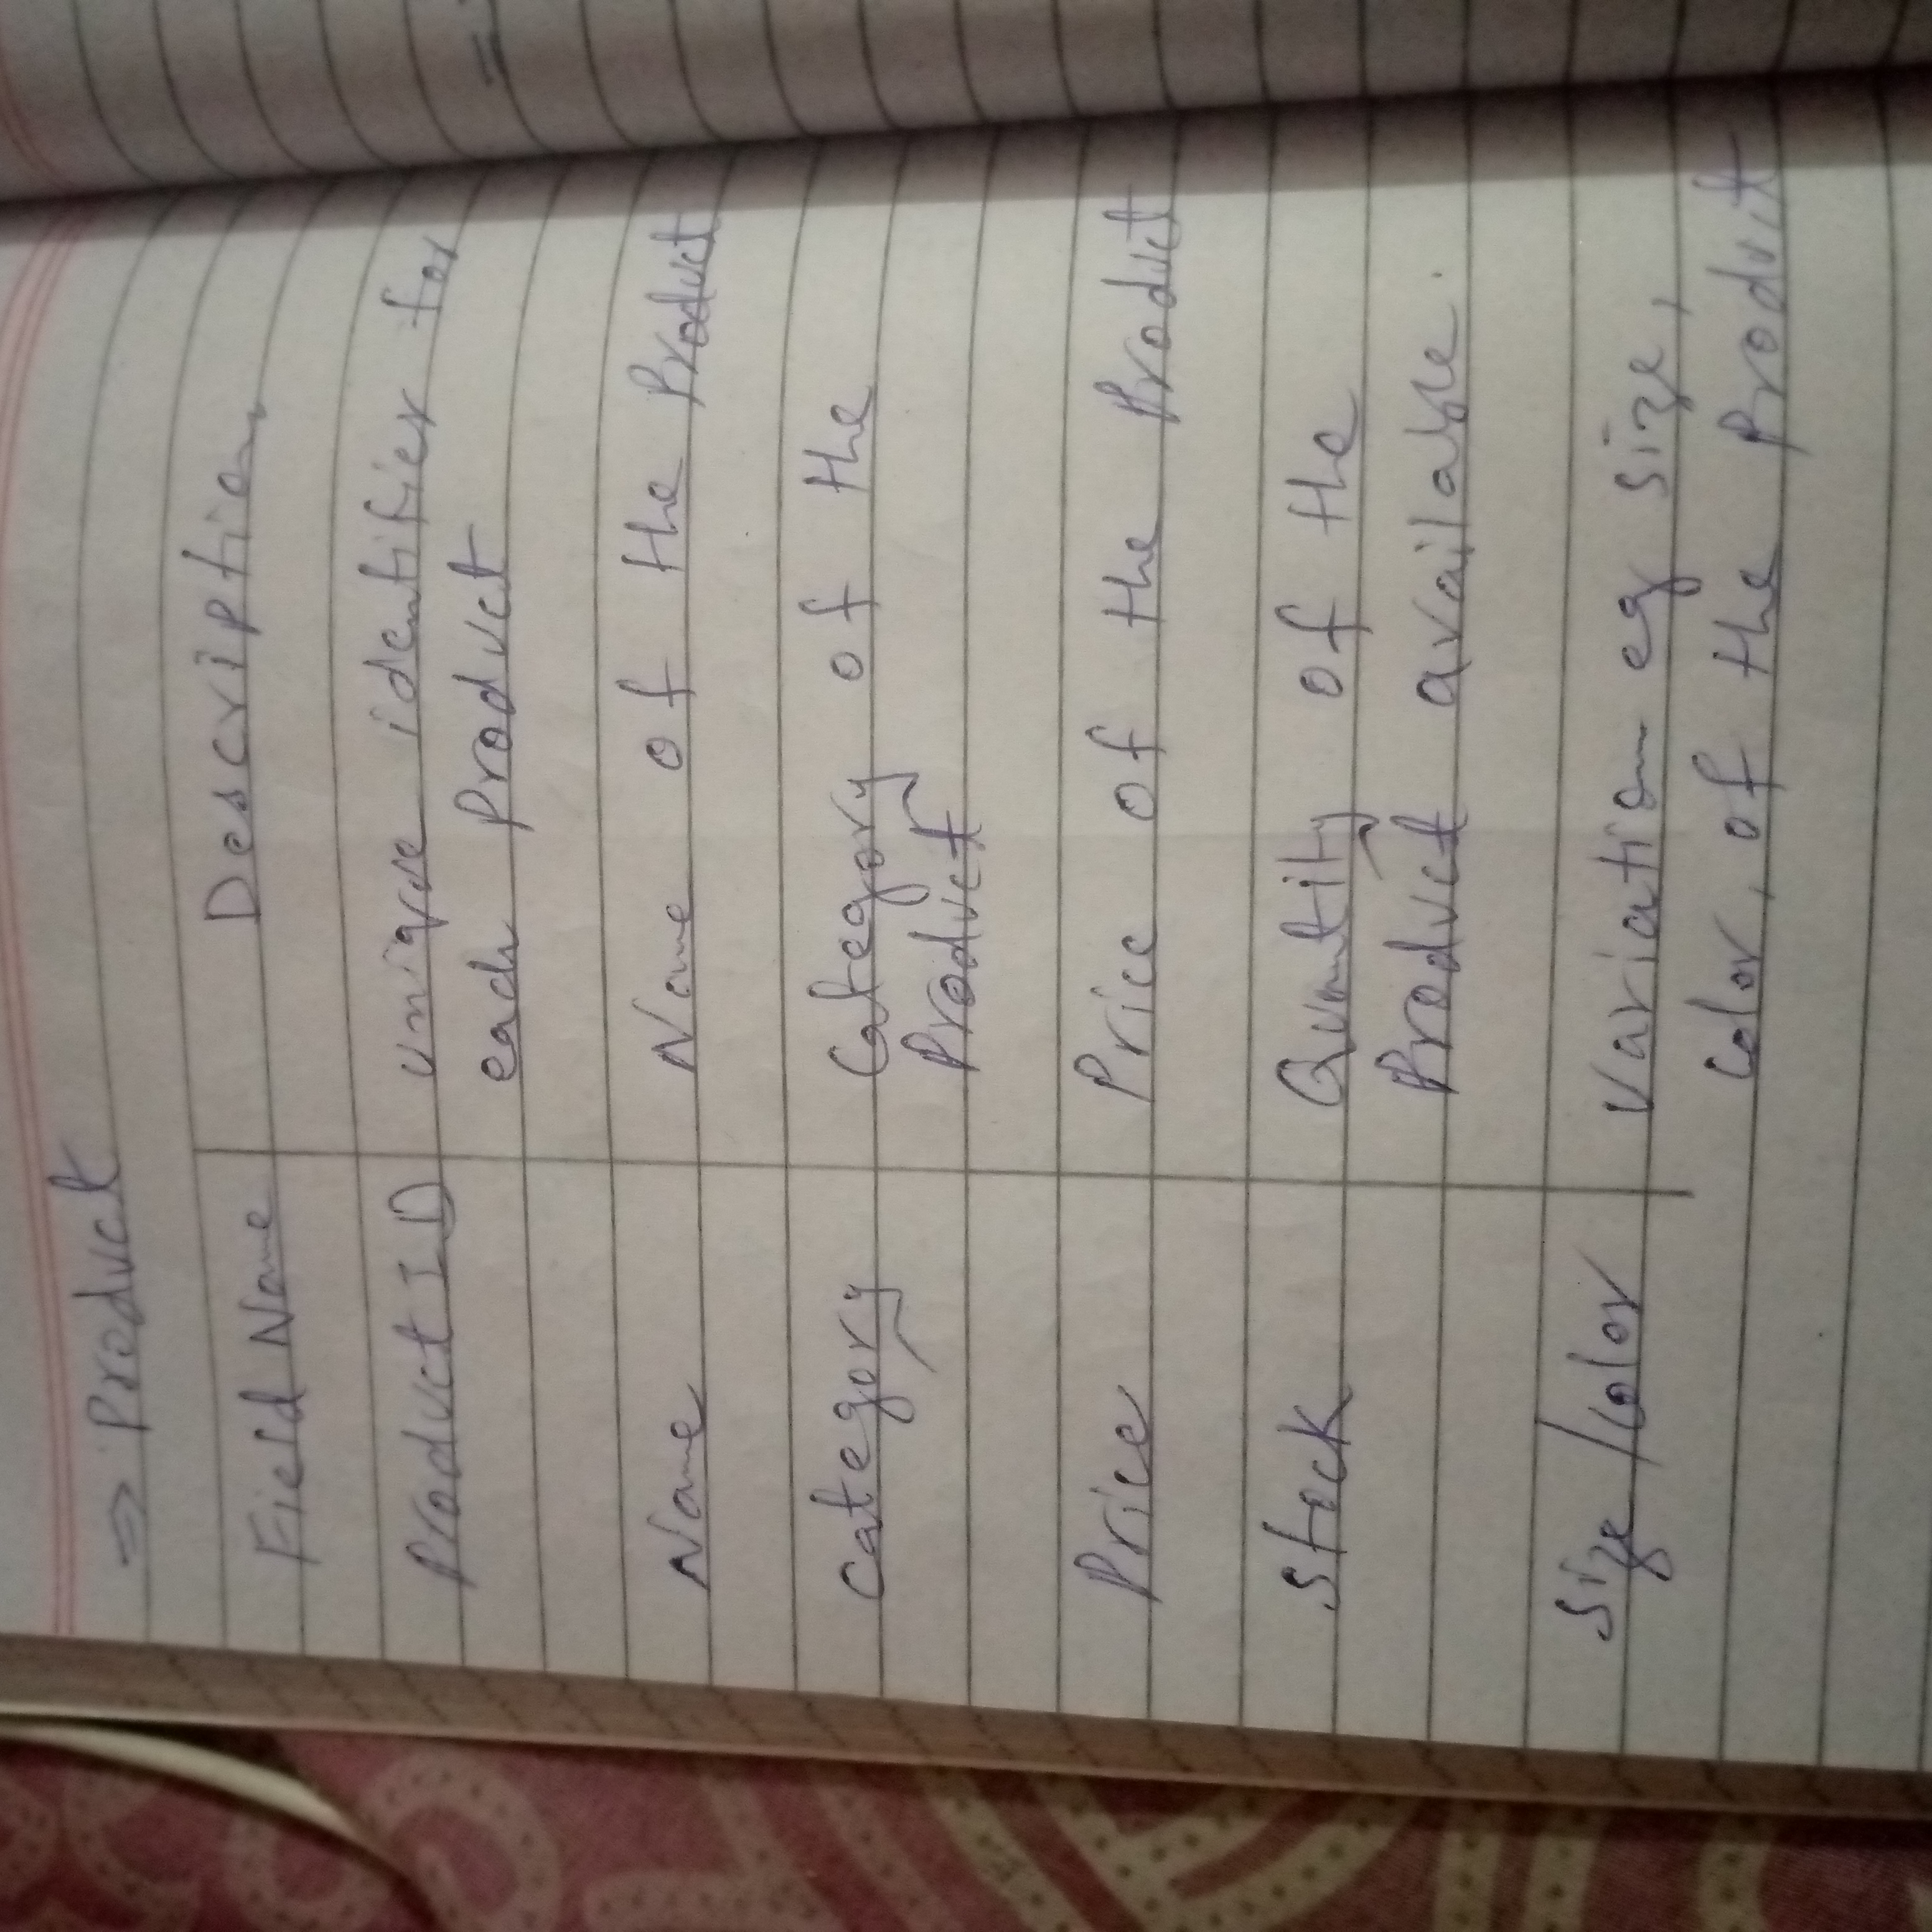 ⇒ Product
Field Name Description
Product ID unique identifier for
each product
Name Name of the Product
Category Category of the
Product
Price Price of the Product
Stock Quantity of the
Product available.
Size/Color Variation eg size,
color, of the product